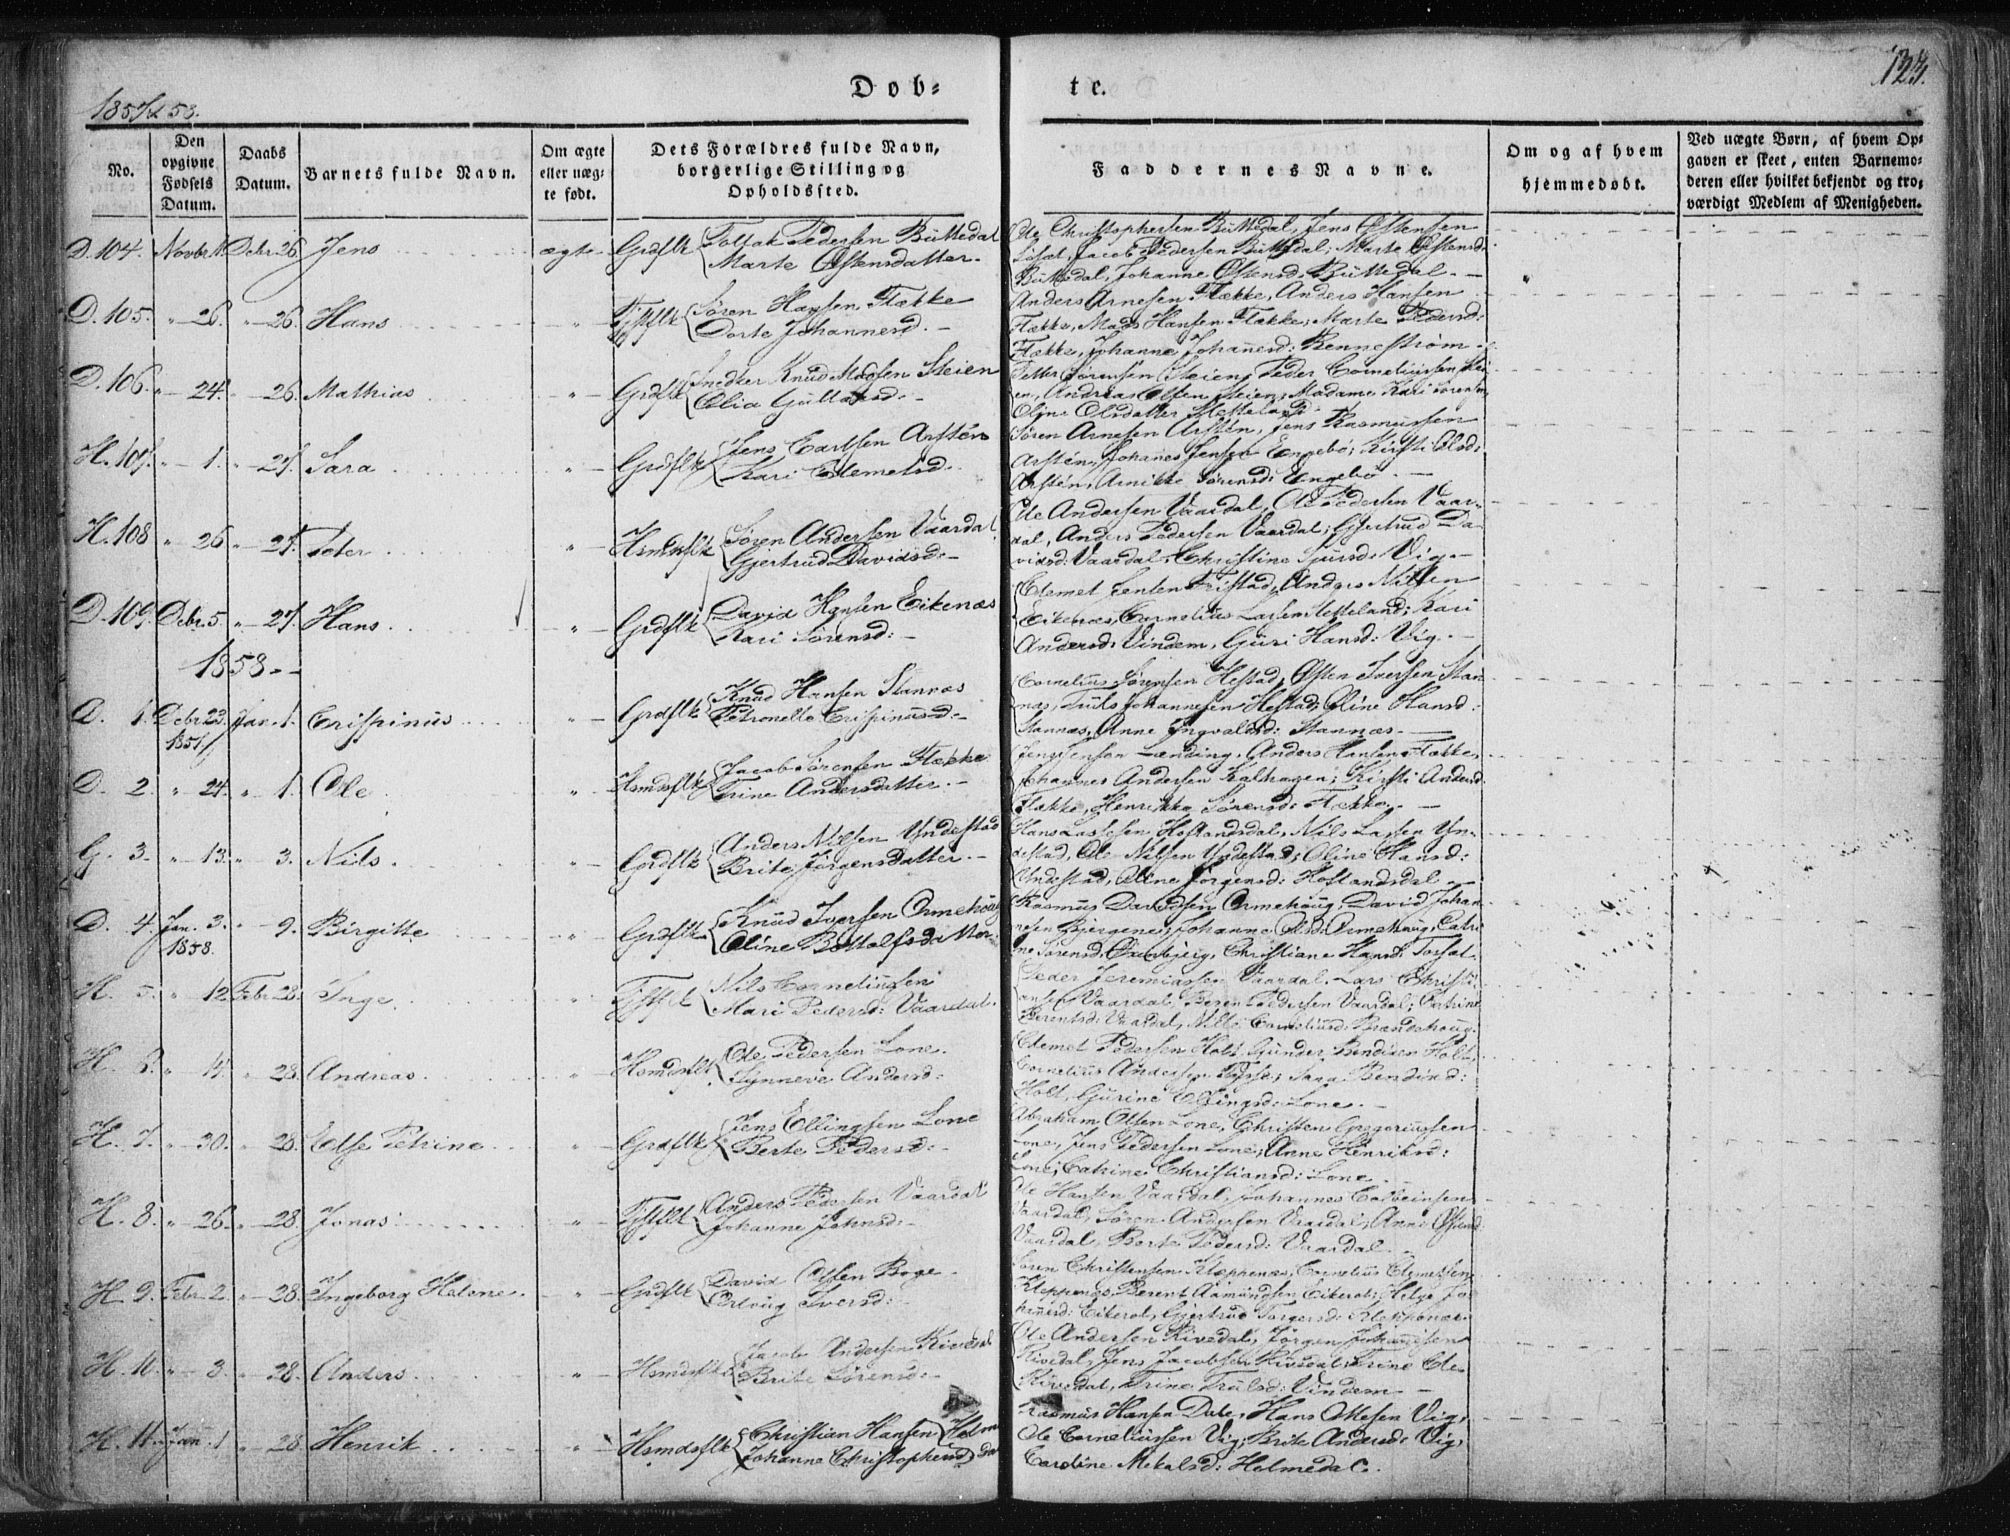 Døb-
te.
123.
1857 & 58.
No.
Den opgivne Fødsels Datum.
Daabs Datum.
Barnets fulde Navn.
Om ægte eller uægte født.
Dets Forældres fulde Navn, borgerlige Stilling og Opholdssted.
Faddernes Navne.
Om og af hvem hjemmedøbt.
Ved uægte Børn, af hvem Opgaven er skeet, enten Barnemoderen eller hvilket bekjendt og troværdigt Medlem af Menigheden.
D. 104. Novbr. Debr. 26. Jens ægte Grdflk Pedersen Büttedal
Marte Østensdatter.
Ole Christophersen Büttedal, Jens Østensen
Jacob Pedersen Büttedal; Marte Østensd:
Büttedal, Johanne Østensd: Büttedal.
D. 105. " 26. " 26. Hans " Søren Hansen Flække
Dorte Johannesd.
Anders Arnesen Flække, Anders Hansen
Flække, Mads Hansen Flække; Marte Pedersd:
Flække, Johanne Johanesd: Rennestrøm
D. 106. " 24. " 26. Mathias " Grdflk Snedker Knud Madsen Steien
Sørensen Steien, Peder Corneliussen Stei
en, Andreas Olsen Steien; Madame Kari Sørensen,
Oline Olsdatter
H. 107. " 1. " 27. Sara " Grdflk Jens Carlsen Arstén
Kari Clemetsd.
Søren Arnesen Arstén, Jens Rasmussen
Arstén, Johanes Jensen Engebø; Kirsti Olsd:
Arstén, Anikke Sørensd: Engebø
H. 108 " 26 " 27. Peter " Hsmdsflk Søren Andersen Vaardal
Gjertrud Davidsd:
Ole Andersen Vaardal, Ole Pedersen Vaar
dal, Anders Pedersen Vaardal; Gjertrud Da
vidsd: Vaardal, Christine Sjursd: Vig.
D. 109. Debr. 5. " 27. Hans " Grdflk David Hansen Eikenæs
Kari Sørensd:
Clemet Jensen Fristad, Anders Nilsen
Eikenæs, Cornelius Larsen Tetteland; Kari
Andersd: Vindem, Guri Hansd: Vig.
1858.
D. 1. Debr. 23. 1857 Jan. 1. Crispinus " Grdflk Knud Hansen Stannæs
Petronelle Crispinusd:
Cornelius Sørensen Hestad, Østen Iversen Stan
næs, Johannesen Hestad; Oline Hansd:
Stannæs, Anne Ingvaldsd: Stannæs.
D. 2. " 24. " 1. Ole " Hsmdsflk Jacob Sørensen Flække
Trine Andersdatter.
Jens Jensen Lending, Anders Hansen Flække,
Johannes Andersen Kalhagen; Kirsti Andersd
Flække, Henrikke Sørensd: Flække.
G. 3. " 13. " 3. Nils. " Grdflk Anders Nilsen Yndestad
Brite Jørgensdatter.
Hans Lassesen Hoflandsdal, Nils Larsen Yn
destad, Ole Nilsen Yndestad; Oline Hansd:
Yndestad, Oline Jørgensd: Hoflandsdal
D. 4. Jan. 3. 1858. " 9. Birgitte " Grdflk Knud Iversen Ormehoug
Oline Bottolfsdatter.
Rasmus Davidsen Ormehoug, David Johan
nesen Bjergene; Johanne Olsd: Ormehoug, Catri
ne Sørensd, Christiane Hansd:
H. 5. " 12 Febr. 28. Inge. " Nils Corneliussen
Mari Pedersd: Vaardal.
Peder Jeremiassen Vaardal, Lars Christi
ansen Vaardal, Berent Pedersen Vaardal; Catrine
Berentsd: Vaardal, Nille Corneliusd: Brandshoug.
H. 6. " 14. " 28. Andreas. " Hsmdsflk Ole Pedersen Lone.
Synneve Andersd:
Clemet Pedersen Holt, Gunder Bendixen Holt,
Cornelius Andersen; Sara Bendixd:
Holt, Gurine Ellingsd: Lone.
H. 7. " 30. " 28. Else Petrine " Grdflk Jens Ellingsen Lone
Berte Pedersd:
Abraham Olsen Lone, Christen Gregoriussen
Lone, Jens Pedersen Lone; Anne Henriksd:
Lone, Catrine Christiansd: Lone.
H. 8. " 26. " 28. Jonas " Anders Pedersen Vaardal
Johanne Johnsd:
Ole Hansen Vaardal, Johannes
Vaardal, Søren Andersen Vaardal; Anne Østensd
Vaardal, Berte Pedersd: Vaardal.
H. 9. Febr. 2. " 28. Ingeborg Helene. " Grdflk David Olsen Boge
Iversd:
Søren Christensen Kleppenæs, Cornelius Clemetsen
Kleppenæs, Berent Aamundsen Eikerol; Helge
Eikerol, Gjertrud Torgersd: Kleppenæs.
H. 10. " 3. " 28. Anders. " Hsmdsflk Jacob Andersen Rivedal
Brite Sørensd:
Ole Andersen Rivedal, Jørgen Johannesen
Rivedal, Jens Jacobsen Rivedal; Trine Ole
Rivedal, Trine Trulsd: Vindem
H. 11. Jan. 1 " 28. Henrik " Hsmdsflk Christian Hansen Holme
Johanne Christophersd dal
Rasmus Hansen Dale, Hans Ottesen Vig,
Ole Corneliussen Vig; Brite Andersd: Vig,
Caroline Mekalsd: Holmedal.